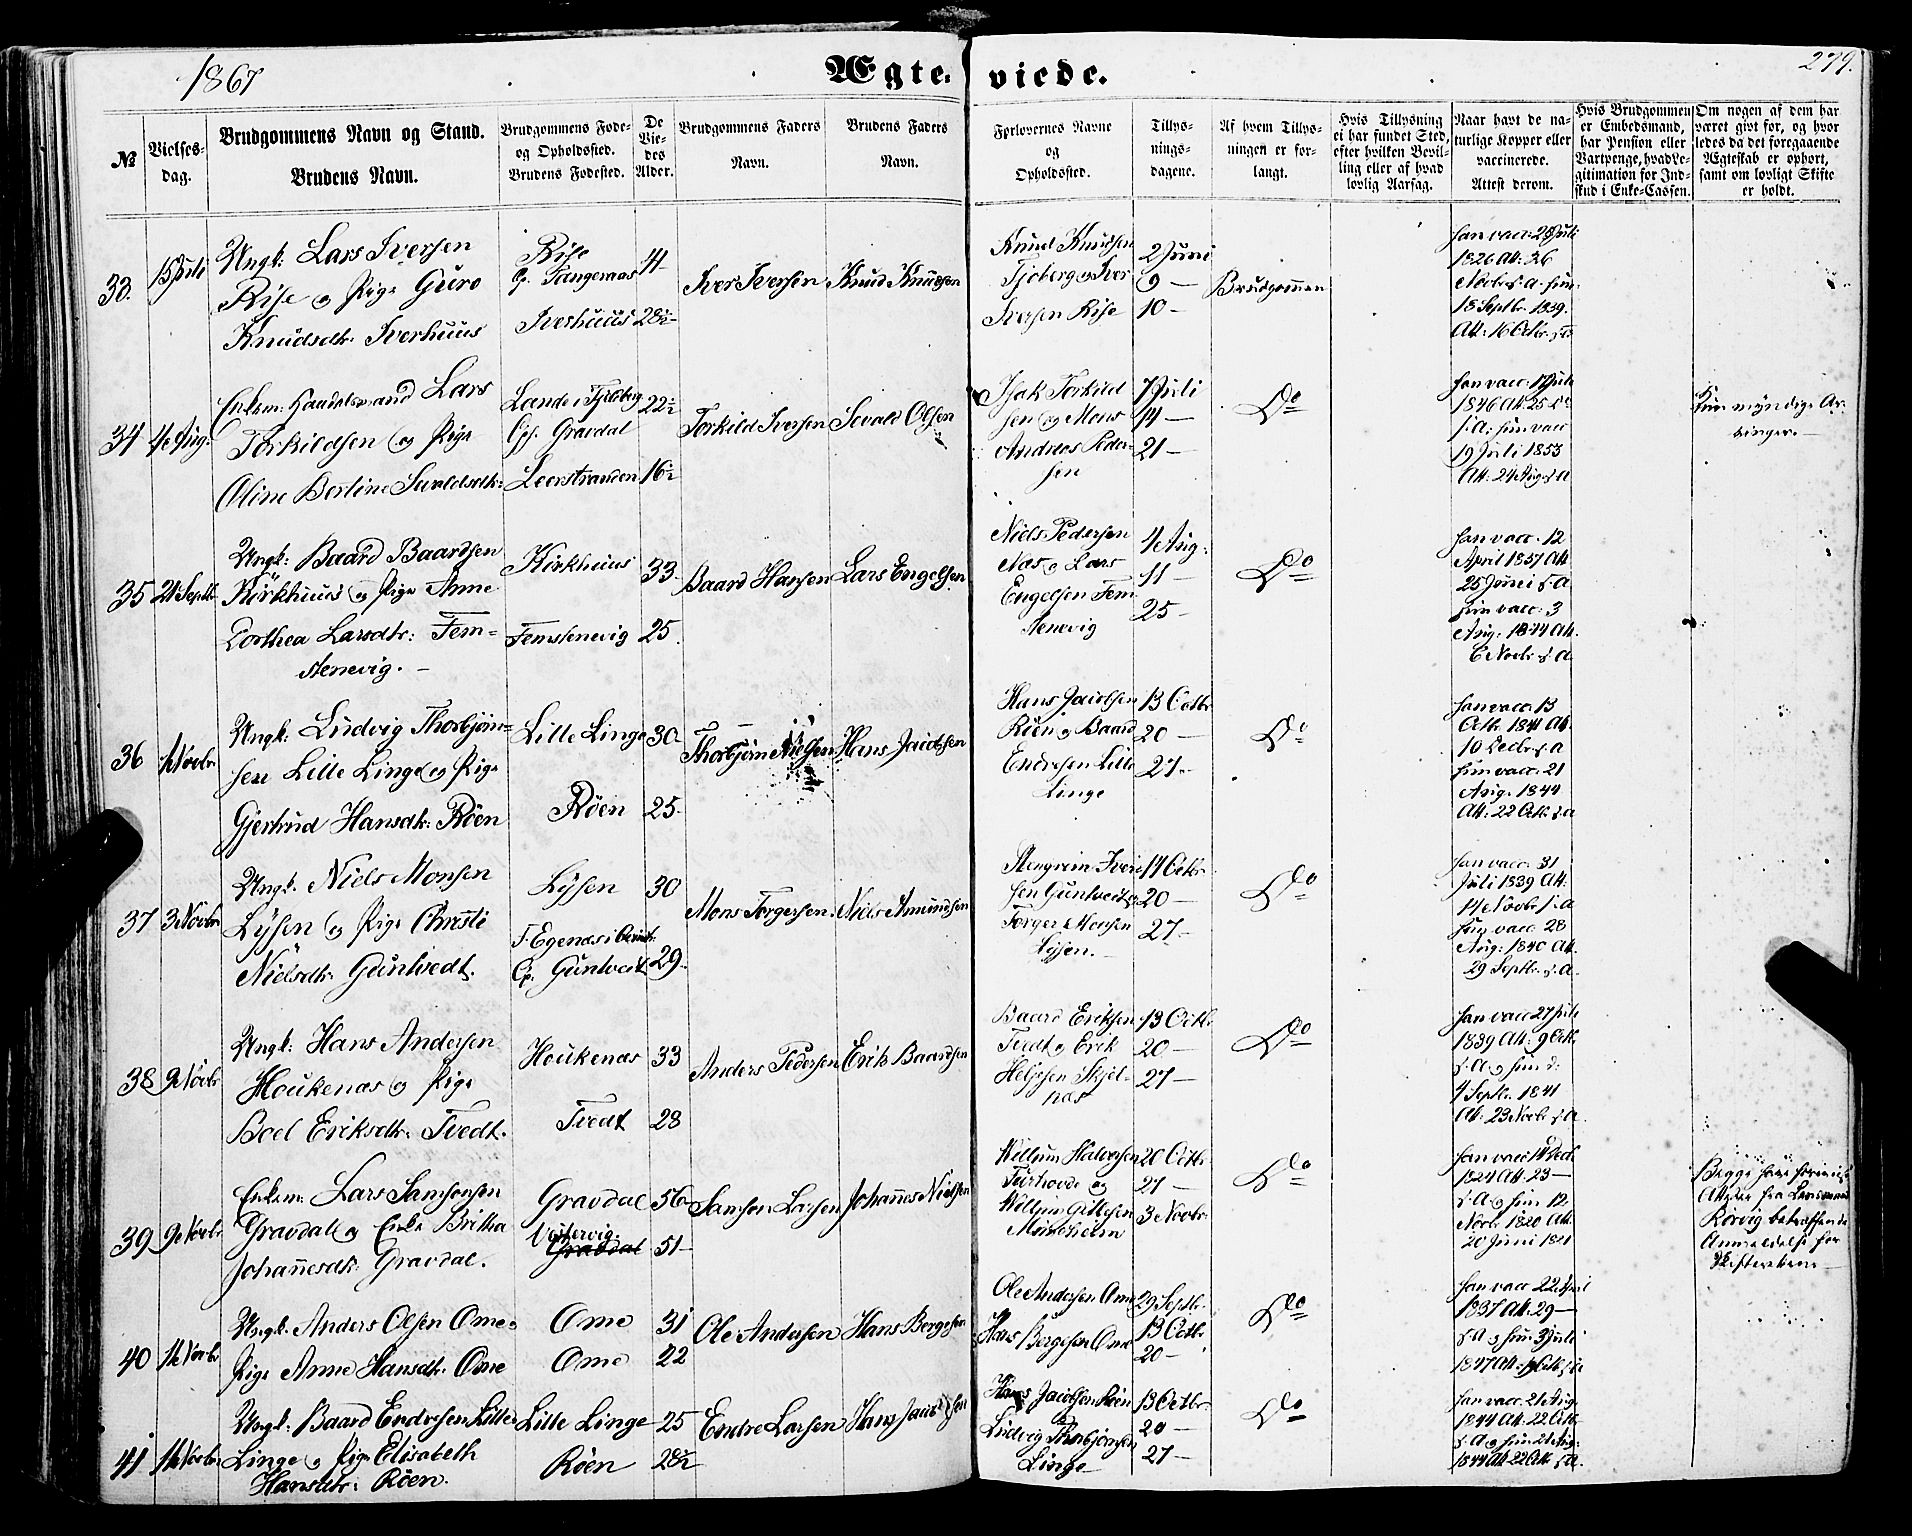 1867
Ægte-
viede.
279.
№
Vielses-
dag.
Brudgommens Navn og Stand.
Brudens Navn.
Brudgommens Føde-
og Opholdssted.
Brudens Fødested.
De
Vie-
des
Alder.
Brudgommens Faders
Navn.
Brudens Faders
Navn.
Forlovernes Navne
og
Opholdssted.
Tillys-
nings-
dagene.
Af hvem Tillys-
ningen er for-
langt.
Hvis Tillysning
ei har fundet Sted,
efter hvilken Bevil-
ling eller af hvad
lovlig Aarsag.
Naar havt de na-
turlige Kopper eller
vaccinerede.
Attest derom.
Hvis Brudgommen
er Embedsmand,
har Pension eller
Vartpenge, hvad Le-
gitimation for Ind-
skud i Enke-Cassen.
Om nogen af dem har
været gift før, og hvor
ledes da det foregaaende
Ægteskab er ophørt,
samt om lovligt Skifte
er holdt.
33.
Ungk: Lars Iversen
Rise og Pige Guro
Knudsdtr. Iverhuus
Rise
Op. Tangeraas
Iverhuus
41
28½
Iver Iversen
Knud Knudsen
Knud Knudsen
Tjoberg og Iver
Iversen Rise
2 Juni
9 —
10 —
Brudgommen
Han vacc: 28 Juli
1826 Att: 26
Novbr s. a. Hun
18 Septbr. 1839.
Att: 16 Octbr. s. a
34
4de Aug:
Enkem: Handelsmand Lars
Torkildsen og Pige
Oline Bertine Sevaldsdtr:
Lande i Tjoberg
Op. Gravdal
Leerstranden
22½
16½
Torkild Iversen
Sevald Olsen
Isak Torkild
sen og Mons
Andreas Peder-
sen
7 Juli
14 —
21 —
Do
Han vacc:
1846 Att: 25 Do
s. a: Hun vacc
19 Juli 1853
Att: 24 Aug s. a
Kun myndige Ar-
vinger. —
35
21 Septbr.
Ungk: Baard Baardsen
Kirkhuus og Pige Anne
Dorthea Larsdtr: Fem-
stenevig. —
Kirkhuus
Femstenevig
33
25.
Baard Hansen
Lars Engelsen.
Niels Pedersen
Næs og Lars
Engelsen Fem
stenevig
4 Aug:
11 —
25 —
Do
Han vacc: 12
April 1837 Att
25 Juni s. a.
Hun vacc: 3
Aug. 1844 Att.
6 Novbr s. a
36
1 Novbr
Ungk: Ludvig Thorbjørn-
sen Lille Linge og Pige
Gjertrud Hansdtr: Røen
Lille Linge
Røen
30.
25.
Thorbjørn Nielsen
Hans Jacobsen
Hans Jacobsen
Røen og Baard
Endresen Lille
Linge
13 Octbr
20 —
27 —
Do
Han vacc. 13
Octbr. 1841 Att.
10 Decbr s. a
Hun vacc: 21
Aug. 1844
Att: 22 Octbr s. a
37
3 Novbr
Ungk. Niels Monsen
Lysen og Pige Christi
Nielsdtr. Guntvedt.
Lysen
F. Egenæs i
Op. Guntvedt
30
29.
Mons Torgersen.
Niels Amundsen
Stengrim Iver
sen Guntvedt og
Torger Monsen
Lysen. —
14 Octbr
20 —
27 —
Do
Han vacc: 31
Juli 1839 Att.
14 Novbr s. a
Hun vacc 28
Aug: 1840 Att.
29 Septbr. s. a.
38
9 Novbr
Ungk: Hans Andersen
Houkenæs og Pige
Boel Eriksdtr. Tvedt.
Houkenæs
Tvedt
33
28
Anders Pedersen
Erik Baardsen
Baard Eriksen
Tvedt og Erik
Heljesen Skjel-
næs
13 Octbr
20 —
27 —
Do
Han vacc 27 Juli
1839 Att: 9 Octbr.
s. a og Hun d:
4 Septbr. 1841
Att: 23 Novbr s. a.
39
9 Novbr
Enkem: Lars Samsonsen
Gravdal og Enke Britha
Johannesdtr. Gravdal.
Gravdal
Vestervig
Gravdal
56
51
Samson Larsen
Johannes Nielsen
Wellum Halvorsen
Turhovde og
Wellum Gittlesen
Mundheim
20 Octbr
27 —
3 Novbr.
Do
Han vacc: 14 Decb
1824 Att. 23 —
s. A og Hun 12
Novbr. 1820 Att.
20 Juni 1821
Begge have forevist
Attester fra Lensmand
Rørvig betræffende
Anmeldelse for
Skifteretten —
40
Ungk. Anders Olsen Ome og
Pige Anne Hansdtr. Ome
Ome
Ome
31
22
Ole Andersen
Hans Bergesen
Ole Andersen Ome
Hans Bergesen Ome
29 Septbr.
13 Octbr
20 —
Do
Han vacc 22 April
1837 Att. 29 —
s. a og Hun 3 Juli
1847 Att. Octbr s. a
41
Ungk: Baard Endresen Lille
Linge og Pige Elisabeth
Hansdtr. Røen.
Lille Linge
Røen
25
28½
Endre Larsen
Hans Jacobsen
Hans Jacobsen Røen
Ludvig Thorbjørnsen
Linge
13 Octbr.
20 —
27 —
Do
Han vacc. 21 Aug.
1844 Att. 22 Octbr
s. A og Hun 21 Aug:
1844 Att 22 Octbr s. a.